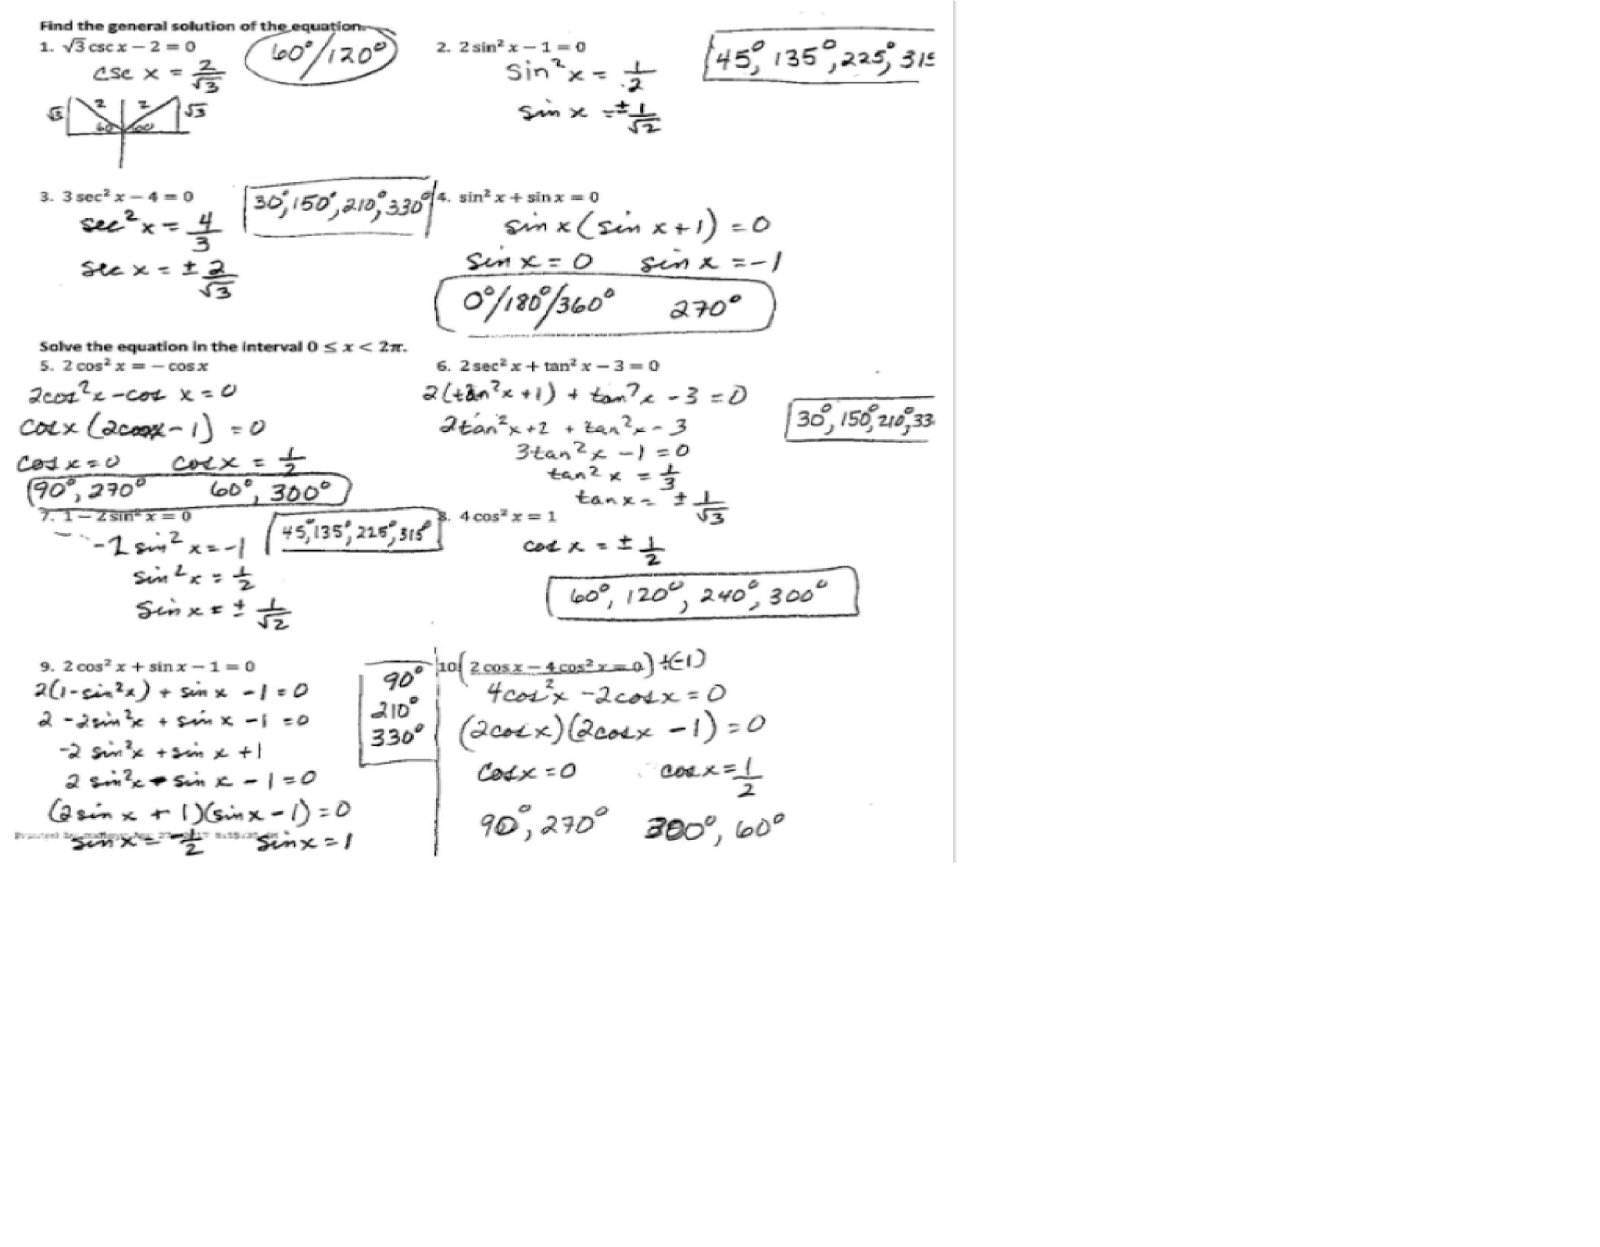 Find the general solution of the equation.
1. √3 csc x − 2 = 0
60°/120°
csc x = 2/√3
√3 2 2 √3
60 60
2. 2 sin² x − 1 = 0
45°, 135°, 225°, 315
sin² x = 1/2
sin x = ± 1/√2
3. 3 sec² x − 4 = 0
30°, 150°, 210°, 330°
sec² x = 4/3
sec x = ± 2/√3
4. sin² x + sin x = 0
sin x (sin x + 1) = 0
sin x = 0 sin x = −1
0°/180°/360° 270°
Solve the equation in the interval 0 ≤ x < 2π.
5. 2 cos² x = − cos x
2cos² x − cos x = 0
cos x (2cos x − 1) = 0
cos x = 0 cos x = 1/2
90°, 270° 60°, 300°
6. 2 sec² x + tan² x − 3 = 0
2(tan² x + 1) + tan² x − 3 = 0
2tan² x + 2 + tan² x − 3
30°, 150°, 210°, 33
3tan² x − 1 = 0
tan² x = 1/3
tan x = ± 1/√3
7. 1 − 2 sin² x = 0
45°, 135°, 225°, 315°
−2 sin² x = −1
sin² x = 1/2
sin x = ± 1/√2
8. 4 cos² x = 1
cos x = ± 1/2
60°, 120°, 240°, 300°
9. 2 cos² x + sin x − 1 = 0
2(1 − sin² x) + sin x − 1 = 0
2 − 2sin² x + sin x − 1 = 0
−2 sin² x + sin x + 1
2 sin² x − sin x − 1 = 0
(2sin x + 1)(sin x − 1) = 0
sin x = −1/2 sin x = 1
90°
210°
330°
10 (2 cos x − 4 cos² x = 0) ÷(−1)
4cos² x − 2cos x = 0
(2cos x)(2cos x − 1) = 0
cos x = 0 cos x = 1/2
90°, 270° 300°, 60°